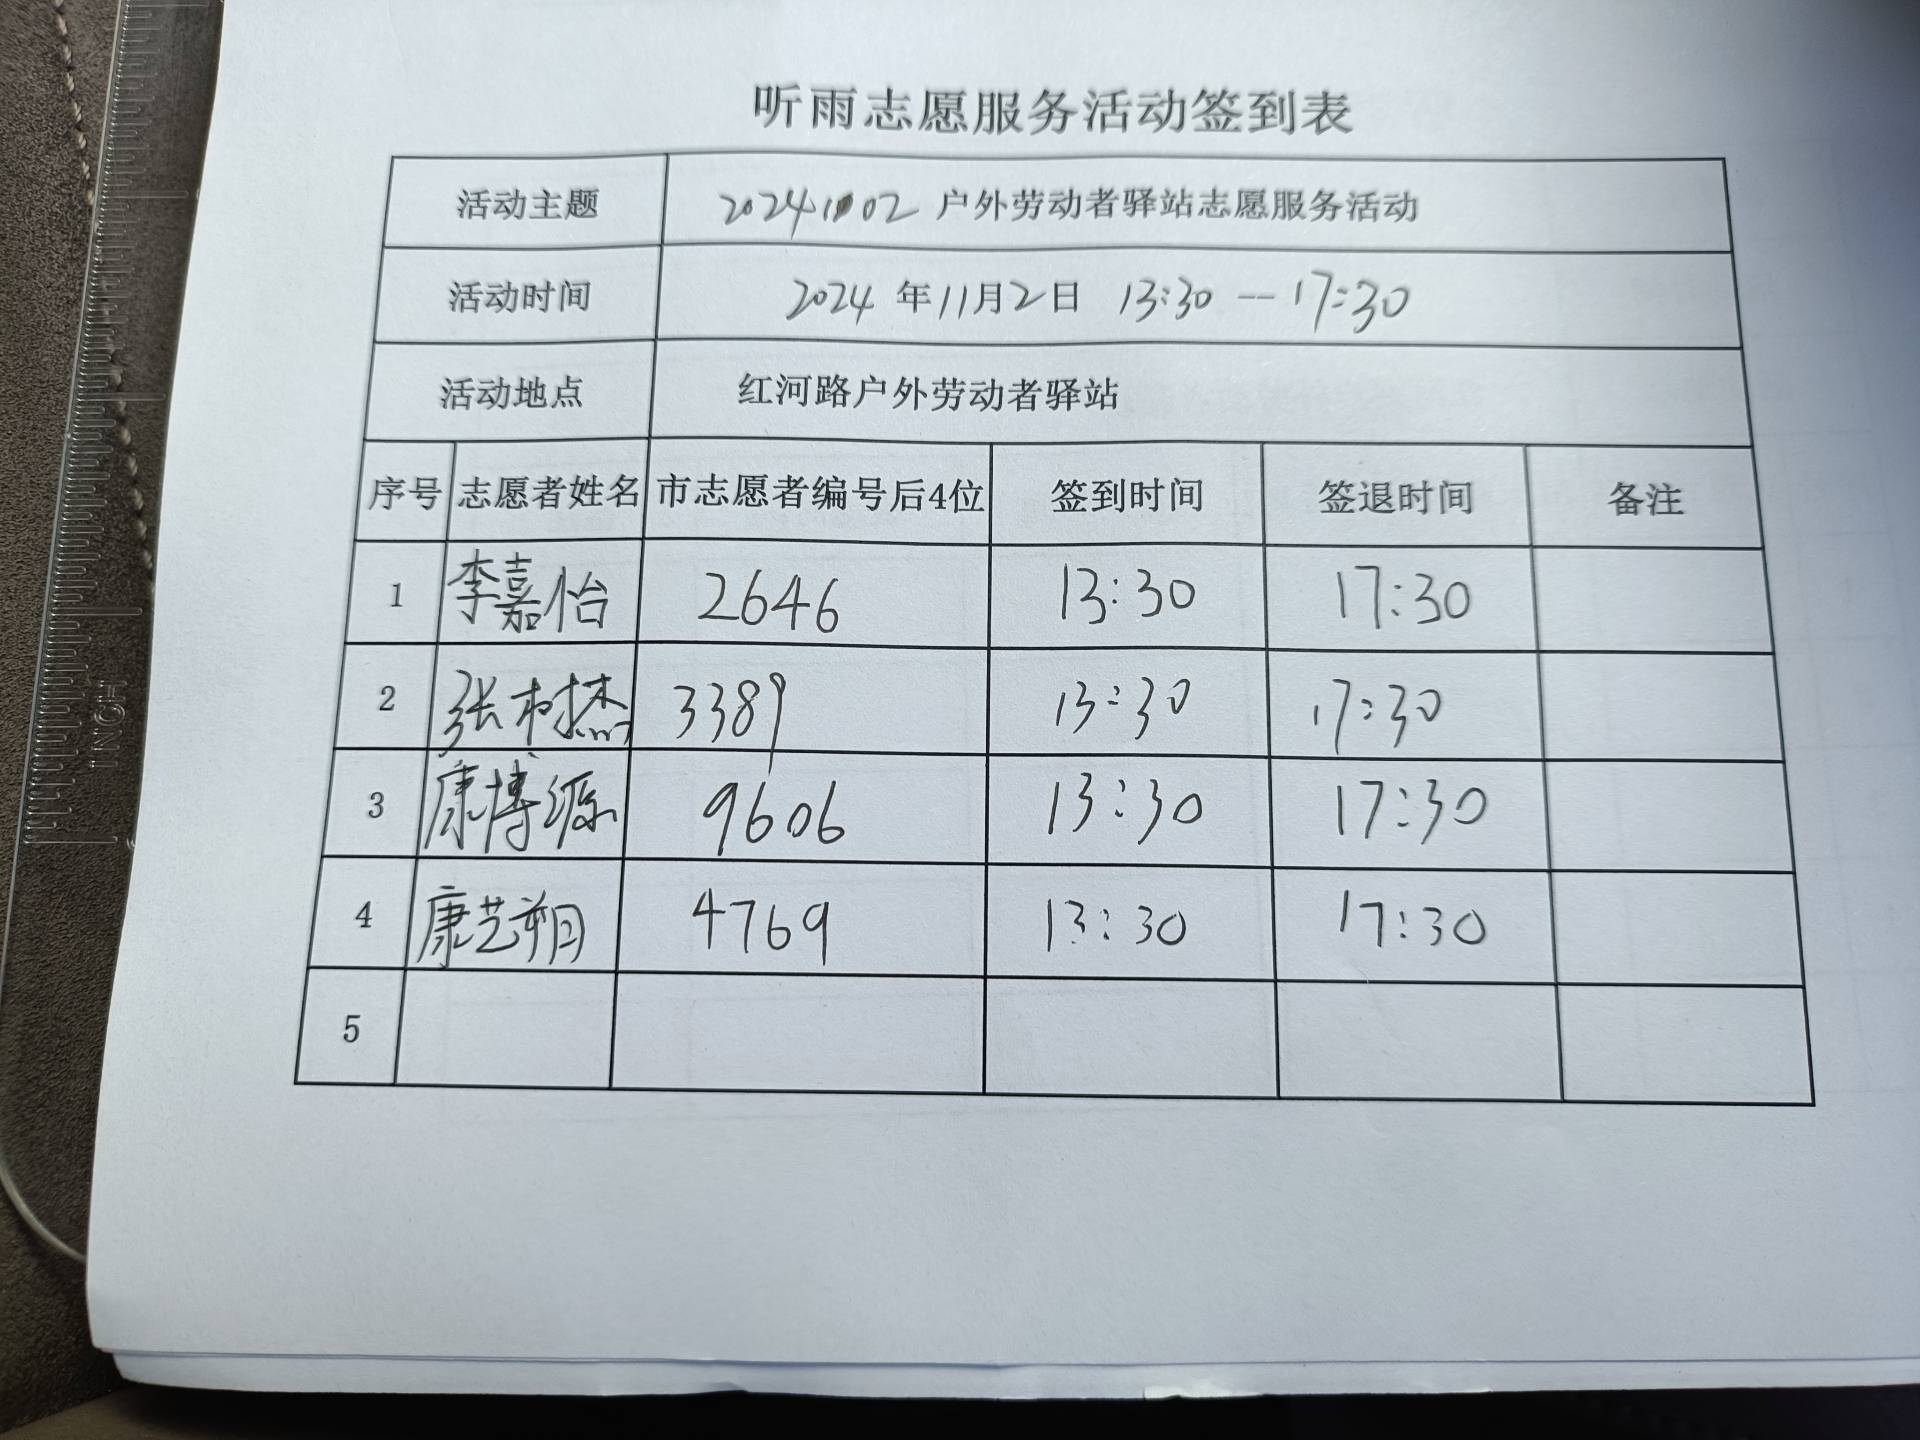 听雨志愿服务活动签到表
活动主题 20241102 户外劳动者驿站志愿服务活动
活动时间 2024年11月2日 13:30 -- 17:30
活动地点 红河路户外劳动者驿站
序号 志愿者姓名 市志愿者编号后4位 签到时间 签退时间 备注
1 李嘉怡 2646 13:30 17:30
2 张树杰 3389 13:30 17:30
3 康博源 9606 13:30 17:30
4 康艺朔 4769 13:30 17:30
5
INCH